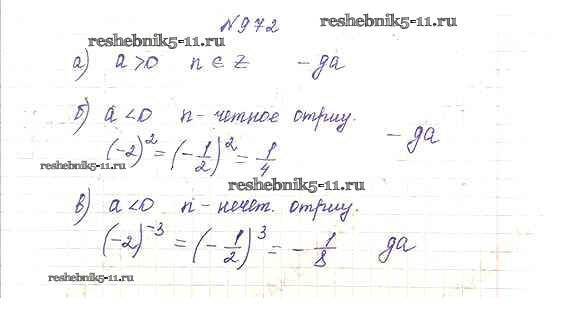 №972
reshebnik5-11.ru
reshebnik5-11.ru
а) a>0 n ∈ Z – да
б) a<0 n - четное отриц.
(-2)^2 = (-1/2)^2 = 1/4 – да
reshebnik5-11.ru
reshebnik5-11.ru
в) a<0 n - нечет. отриц.
(-2)^-3 = (-1/2)^3 = -1/8 да
reshebnik5-11.ru